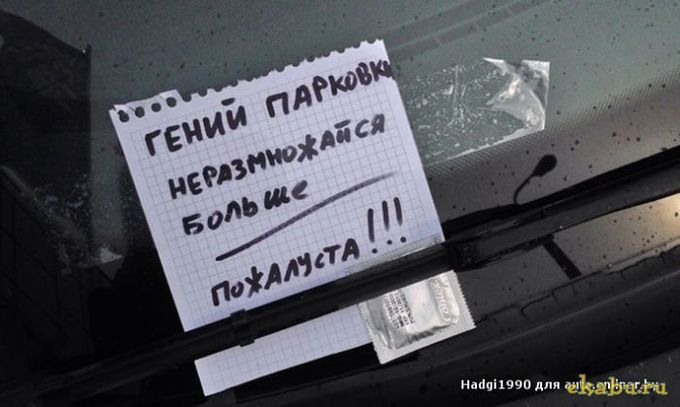 ГЕНИЙ ПАРКОВКИ
НЕРАЗМНОЖАЙСЯ
БОЛЬШЕ
ПОЖАЛУСТА!!!
Hadgi1990 для auto.onliner.by
ekabu.ru